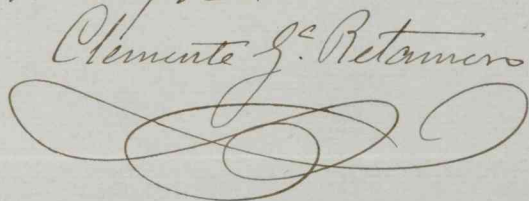 Clemente Gᶜ. Retamero